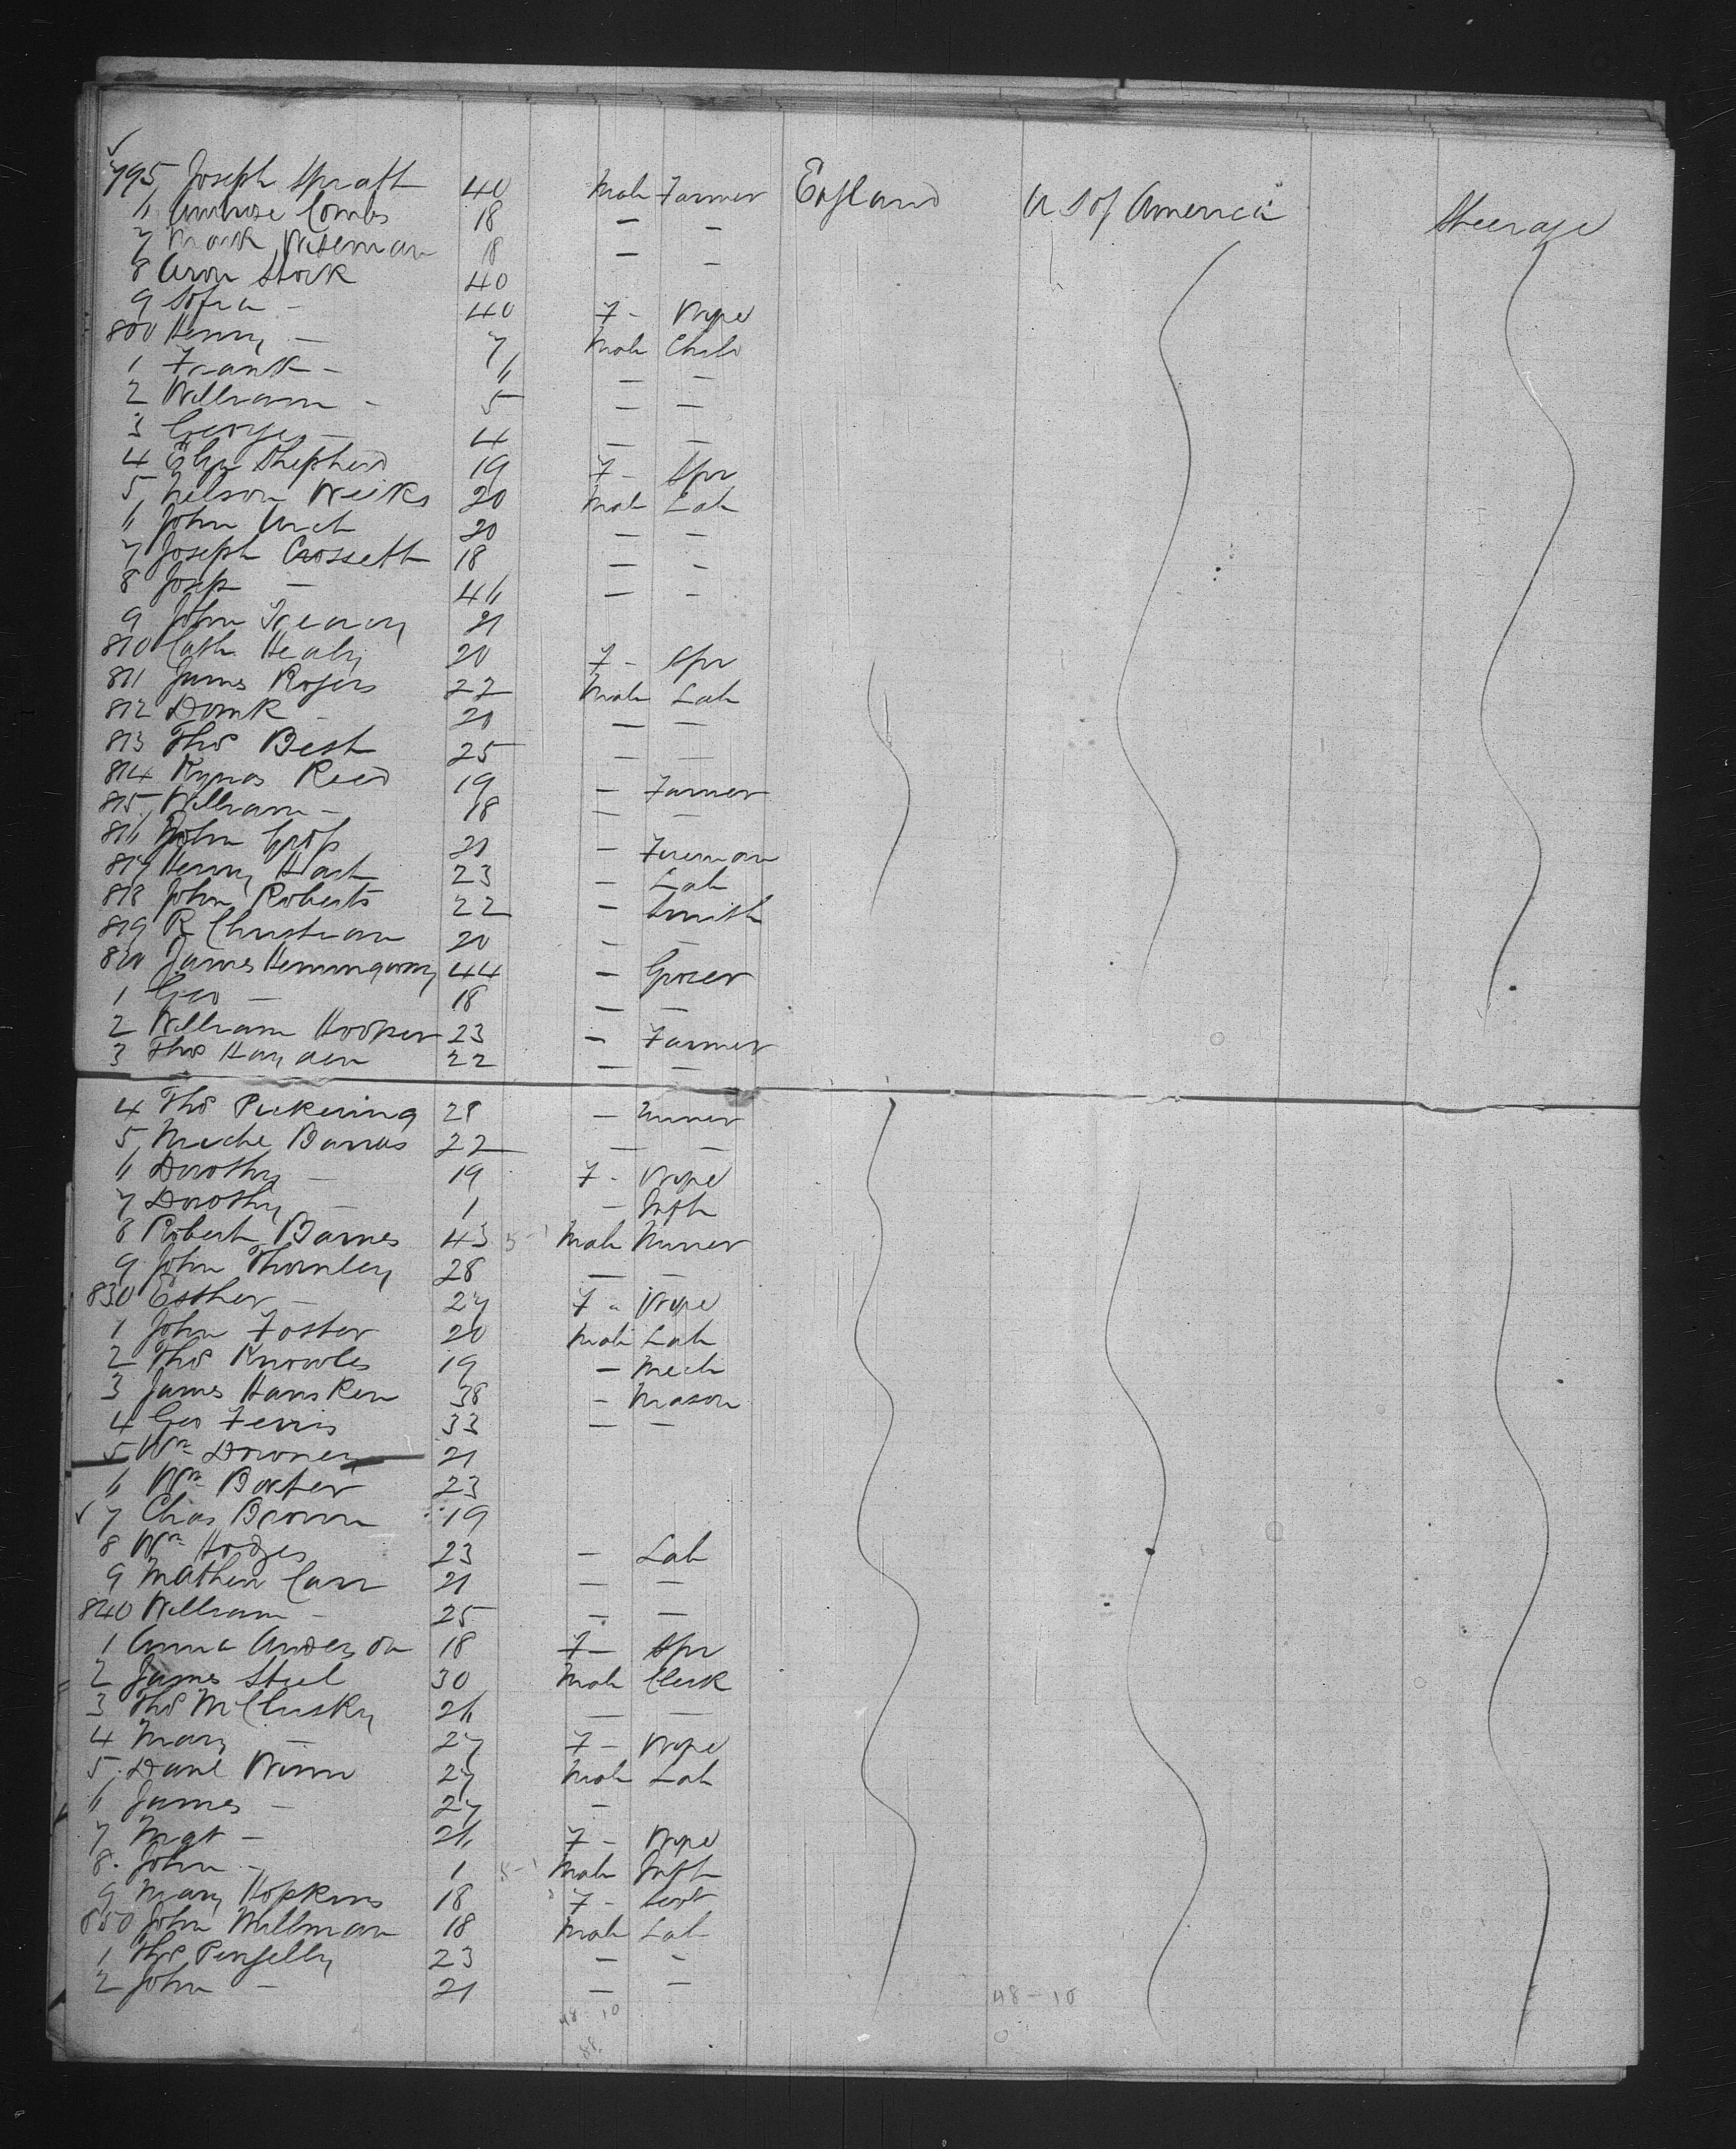 795 Joseph Spratt 40 Male Farmer England U S of America Steerage
6 Ambrose Combs 18 — —
7 Mark Wiseman 18 — —
8 Aron Stock 40
9 Sofia — 40 F - Wife
800 Henry — 7 Male Child
1 Frank - 6 — —
2 William - 5 — —
3 George — 4 — —
4 Eliza Shepherd 19 F - Spr
5 Nelson Weeks 20 Male Lab
6 John Arch 20 — —
7 Joseph Crossett 18 — -
8 Josep — 46 — -
9 John Trenary 21
810 Cath Healy 20 F - Spr
811 James Rogers 22 Male Lab
812 Domk - 20 — —
813 Thos Best 25 — —
814 Reed 19 — Farmer
815 William — 18 — —
816 John 21 — Fireman
817 Henry Hart 23 — Lab
818 John Roberts 22 — Smith
819 R Christian 20 — —
820 James Hemingway 44 — Grocer
1 Geo — 18 — —
2 William Hooper 23 — Farmer
3 Thos Hayden 22 — —
4 Thos Pickering 28 — Miner
5 Barras 22 — —
6 Dorothy — 19 F - Wife
7 Dorothy — 1 — Inft
8 Robert Barnes 43 Male Miner
9 John Thornley 28 — —
830 Esther — 27 F - Wife
1 John Foster 20 Male Lab
2 Thos Knowles 19 — Mech
3 James Hansken 38 - Mason
4 Geo Ferris 33 — —
5 Wm Downey 21
6 Wm Baxter 23
7 Chas Brown 19
8 Wm Hodges 23 — Lab
9 Mathew Carr 21 — —
840 William — 25 — —
1 Anna Anderson 18 F — Spr
2 James Steel 30 Male Clerk
3 Thos McClusky 26 — —
4 Mary — 27 F - Wife
5 Danl Winn 27 Male Lab
6 James — 27 —
7 Mgt — 26 F - Wife
8 John - 1 Male Inft
9 Mary Hopkins 18 F - Servt
850 John Millman 18 Male Lab
1 Thos Pengelly 23 — -
2 John — 21 — —
48 - 10 48 - 10